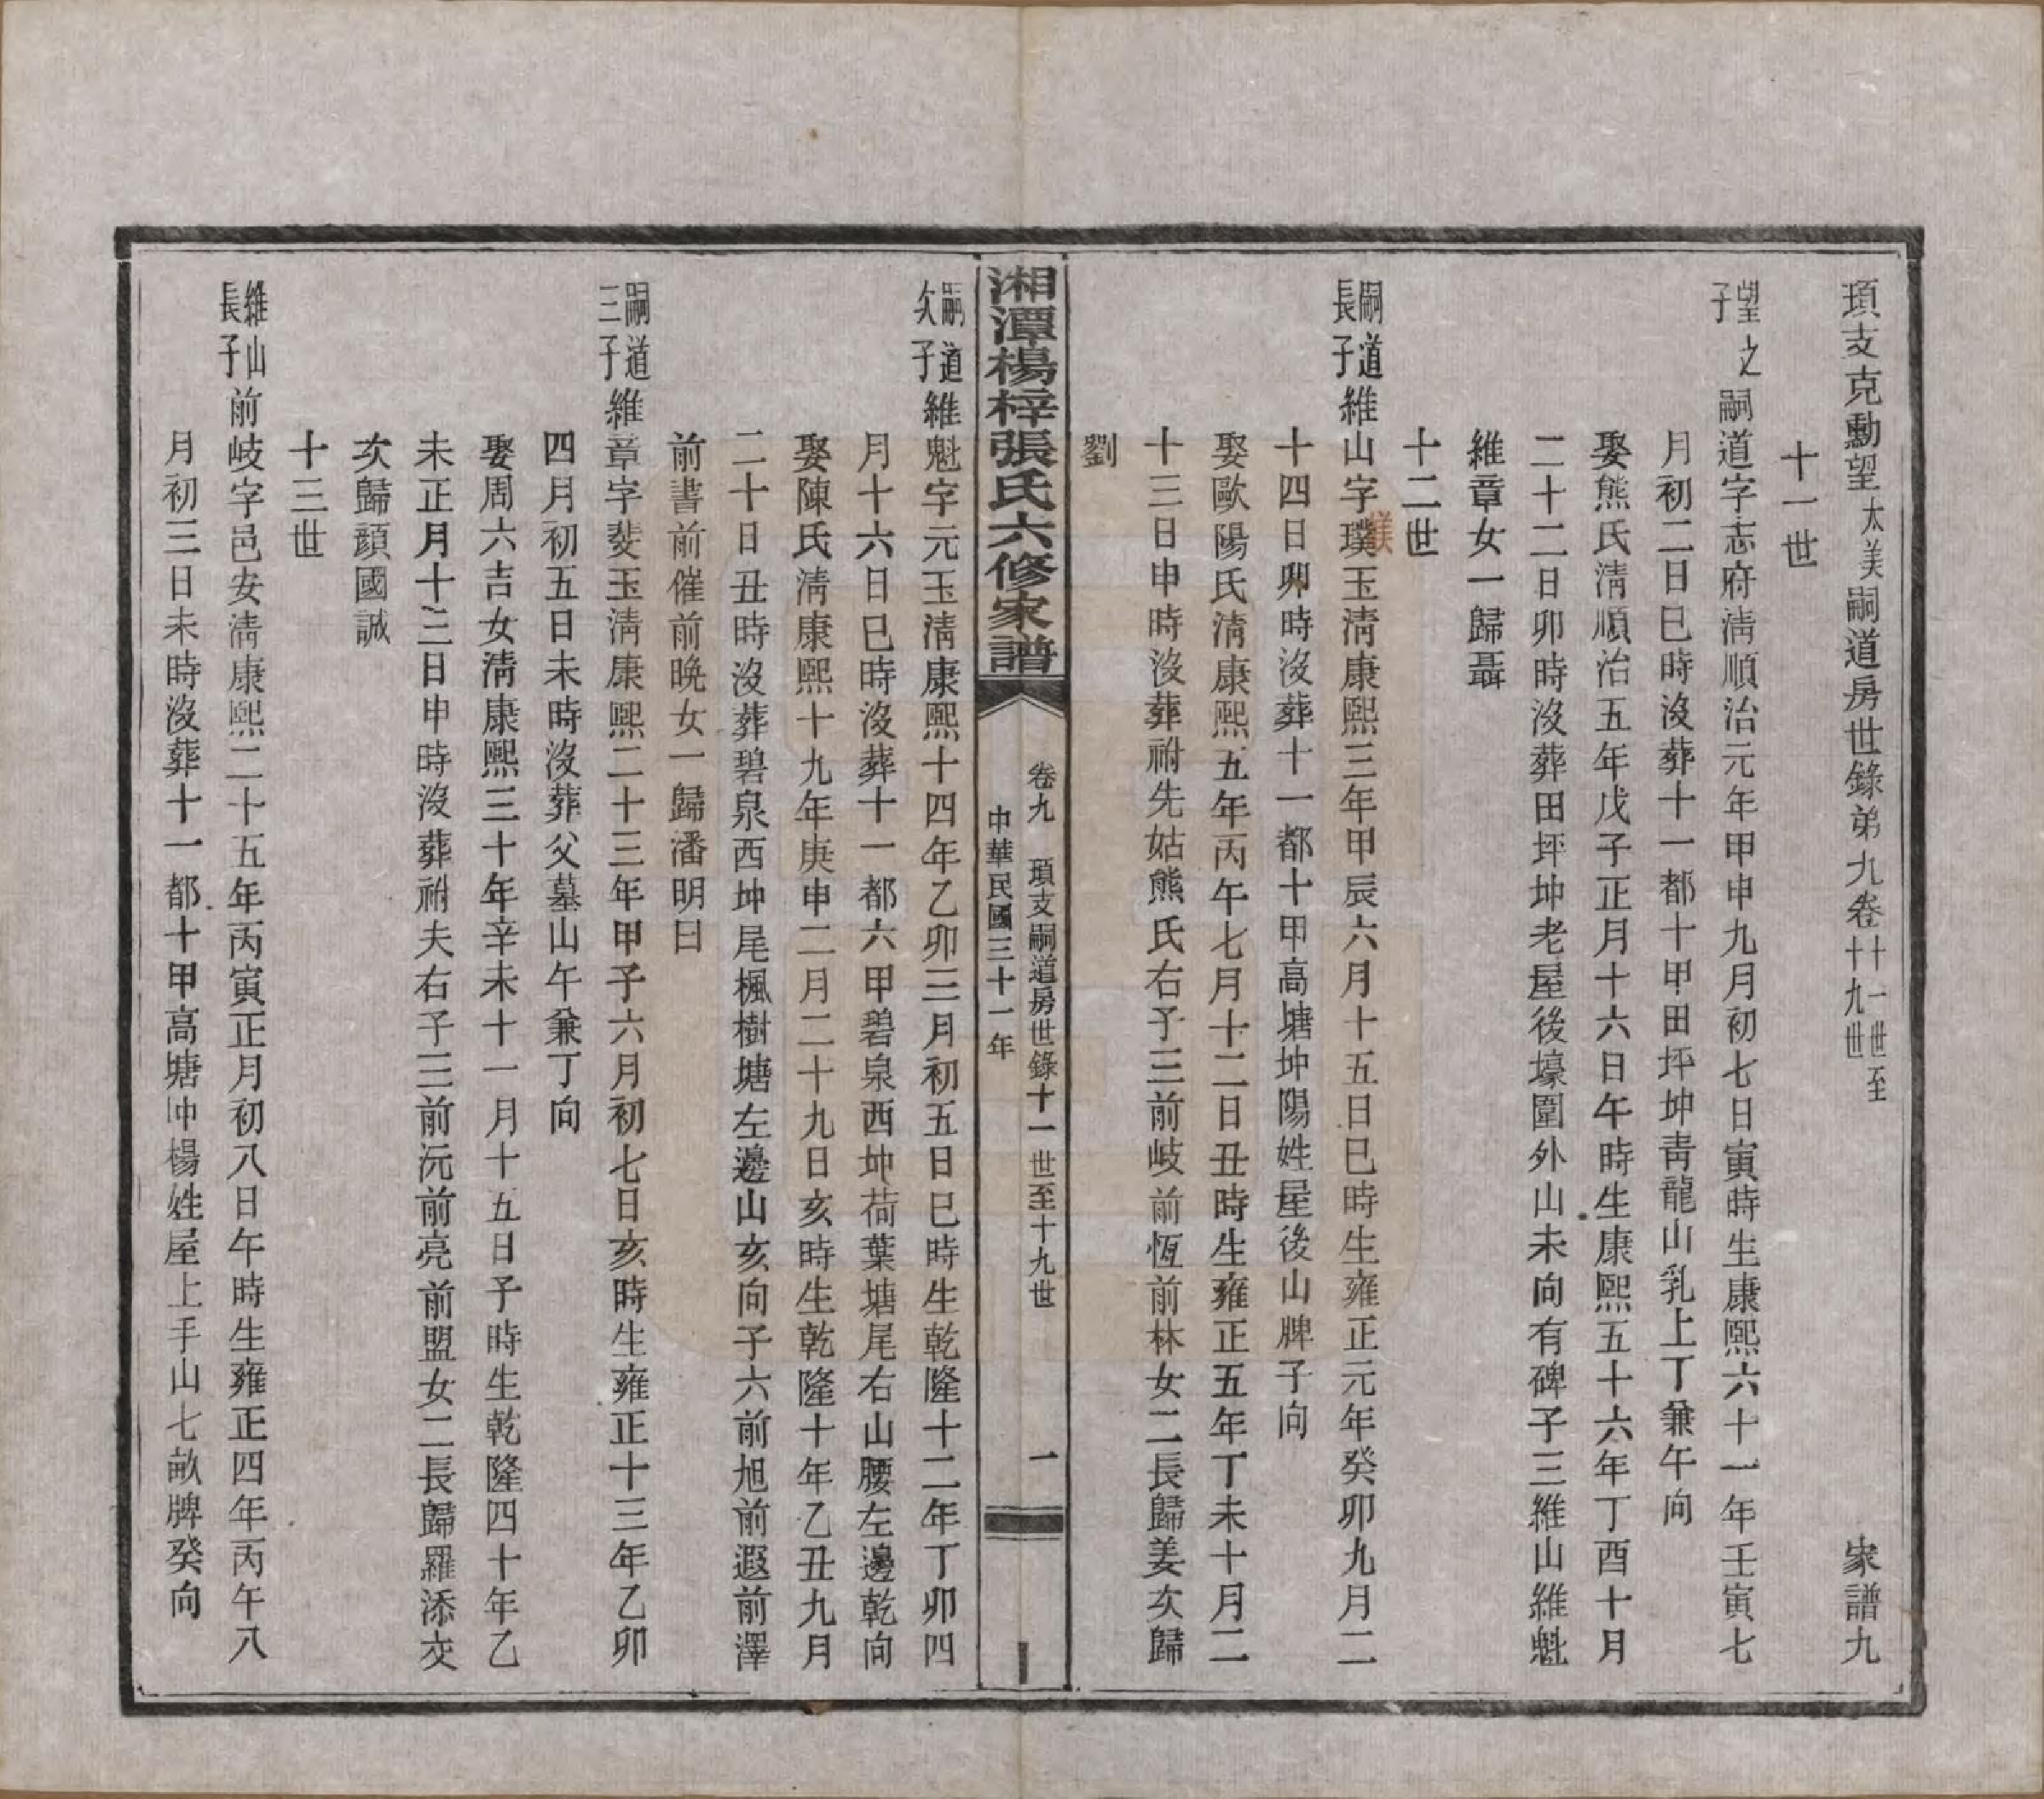 頊支克勳望太美嗣道房世錄弟九卷十一世至十九世　家譜九
十一世
望之子嗣道字志府淸順治元年甲申九月初七日寅時生康熙六十一年壬寅七
月初二日巳時沒葬十一都十甲田坪坤靑龍山乳上丁兼午向
娶熊氏淸順治五年戊子正月十六日午時生康熙五十六年丁酉十月
二十二日卯時沒葬田坪坤老屋後壕圍外山未向有碑子三維山維魁
維章女一歸聶
十二世
嗣道長子維山字璞玉淸康熙三年甲辰六月十五日巳時生雍正元年癸卯九月二
十四日卯時沒葬十一都十甲高塘坤陽姓屋後山牌子向
娶歐陽氏淸康熙五年丙午七月十二日丑時生雍正五年丁未十月二
十三日申時沒葬祔先姑熊氏右子三前岐前恆前林女二長歸姜次歸
劉
湘潭楊梓張氏六修家譜
卷九　頊支嗣道房世錄十一世至十九世　一
中華民國三十一年
嗣道次子維魁字元玉淸康熙十四年乙卯三月初五日巳時生乾隆十二年丁卯四
月十六日巳時沒葬十一都六甲碧泉西坤荷葉塘尾右山腰左邊乾向
娶陳氏淸康熙十九年庚申二月二十九日亥時生乾隆十年乙丑九月
二十日丑時沒葬碧泉西坤尾楓樹塘左邊山亥向子六前旭前遐前澤
前書前催前晚女一歸潘明曰
嗣道三子維章字斐玉淸康熙二十三年甲子六月初七日亥時生雍正十三年乙卯
四月初五日未時沒葬父墓山午兼丁向
娶周六吉女淸康熙三十年辛未十一月十五日子時生乾隆四十年乙
未正月十三日申時沒葬祔夫右子三前沅前亮前盟女二長歸羅添交
次歸顔國誠
十三世
維山長子前岐字邑安淸康熙二十五年丙寅正月初八日午時生雍正四年丙午八
月初三日未時沒葬十一都十甲高塘冲楊姓屋上手山七畝牌癸向